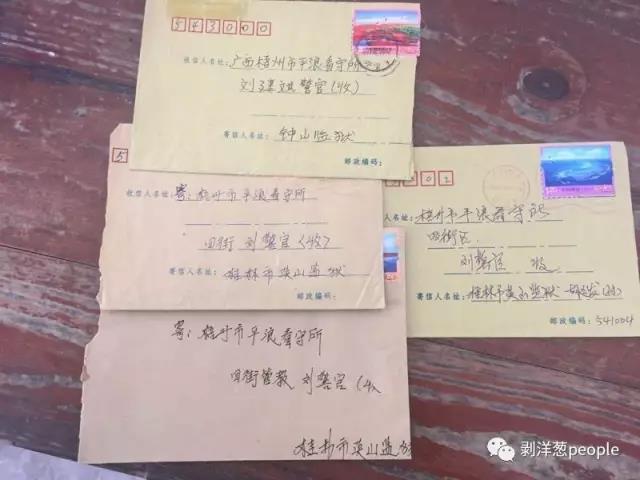 543000
收信人名址：广西梧州市平浪看守所
警官(收)
寄信人名址：钟山监狱
邮政编码：
5
收信人名址：寄：梧州市平浪看守所
四街 刘警官(收)
寄信人名址：桂林市英山监狱
邮政编码：
收信人名址：梧州市平浪看守所
四街区
刘警官 收
寄信人名址：桂林市英山监狱
邮政编码：541004
寄：梧州市平浪看守所
四街管教 刘警官(收
桂林市英山监狱
剥洋葱people